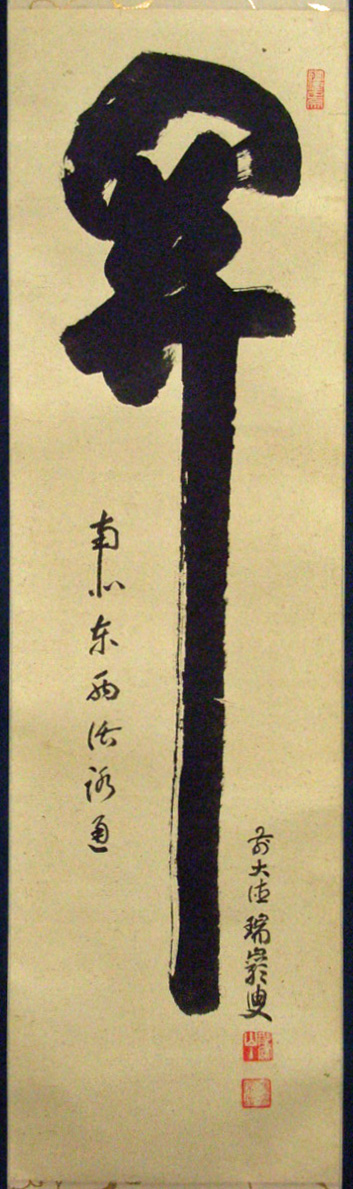 関
南北東西活路通
前大徳瑞巖叟